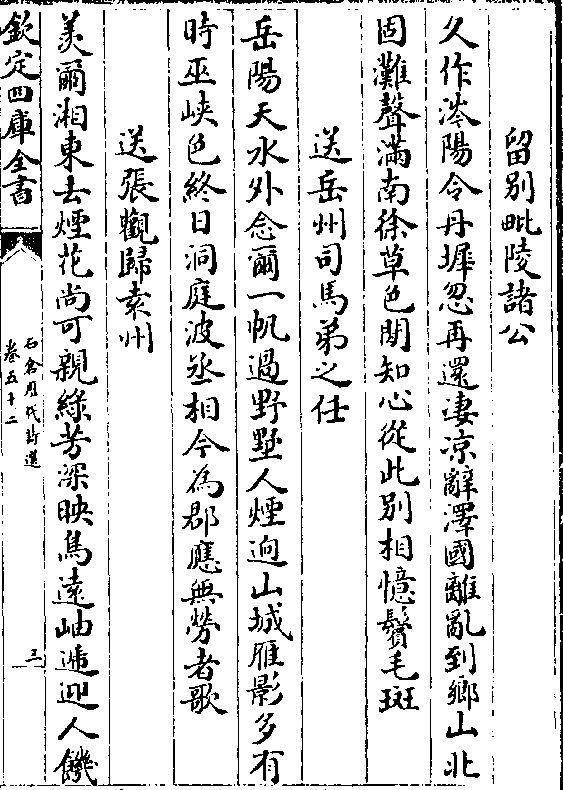 留別毗陵諸公
久作涔陽令丹墀忽再還淒凉辭澤國離亂到鄉山北
固灘聲滿南徐草色閒知心從此別相憶鬢毛斑
送岳州司馬弟之任
岳陽天水外念爾一帆過野墅人煙迥山城雁影多有
時巫峽色終日洞庭波丞相今為郡應無勞者歌
送張觀歸袁州
羡爾湘東去煙花尚可親綠芳深映鳥遠岫遞迎人饑
欽定四庫全書
石倉歷代詩選
卷五十二
三